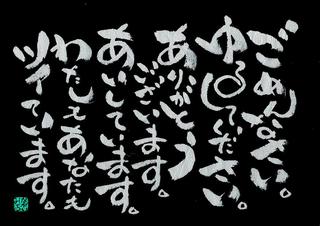 ごめんなさい。
ゆるしてください。
ありがとう
ございます。
あいしています。
わたしもあなたも
ツイています。